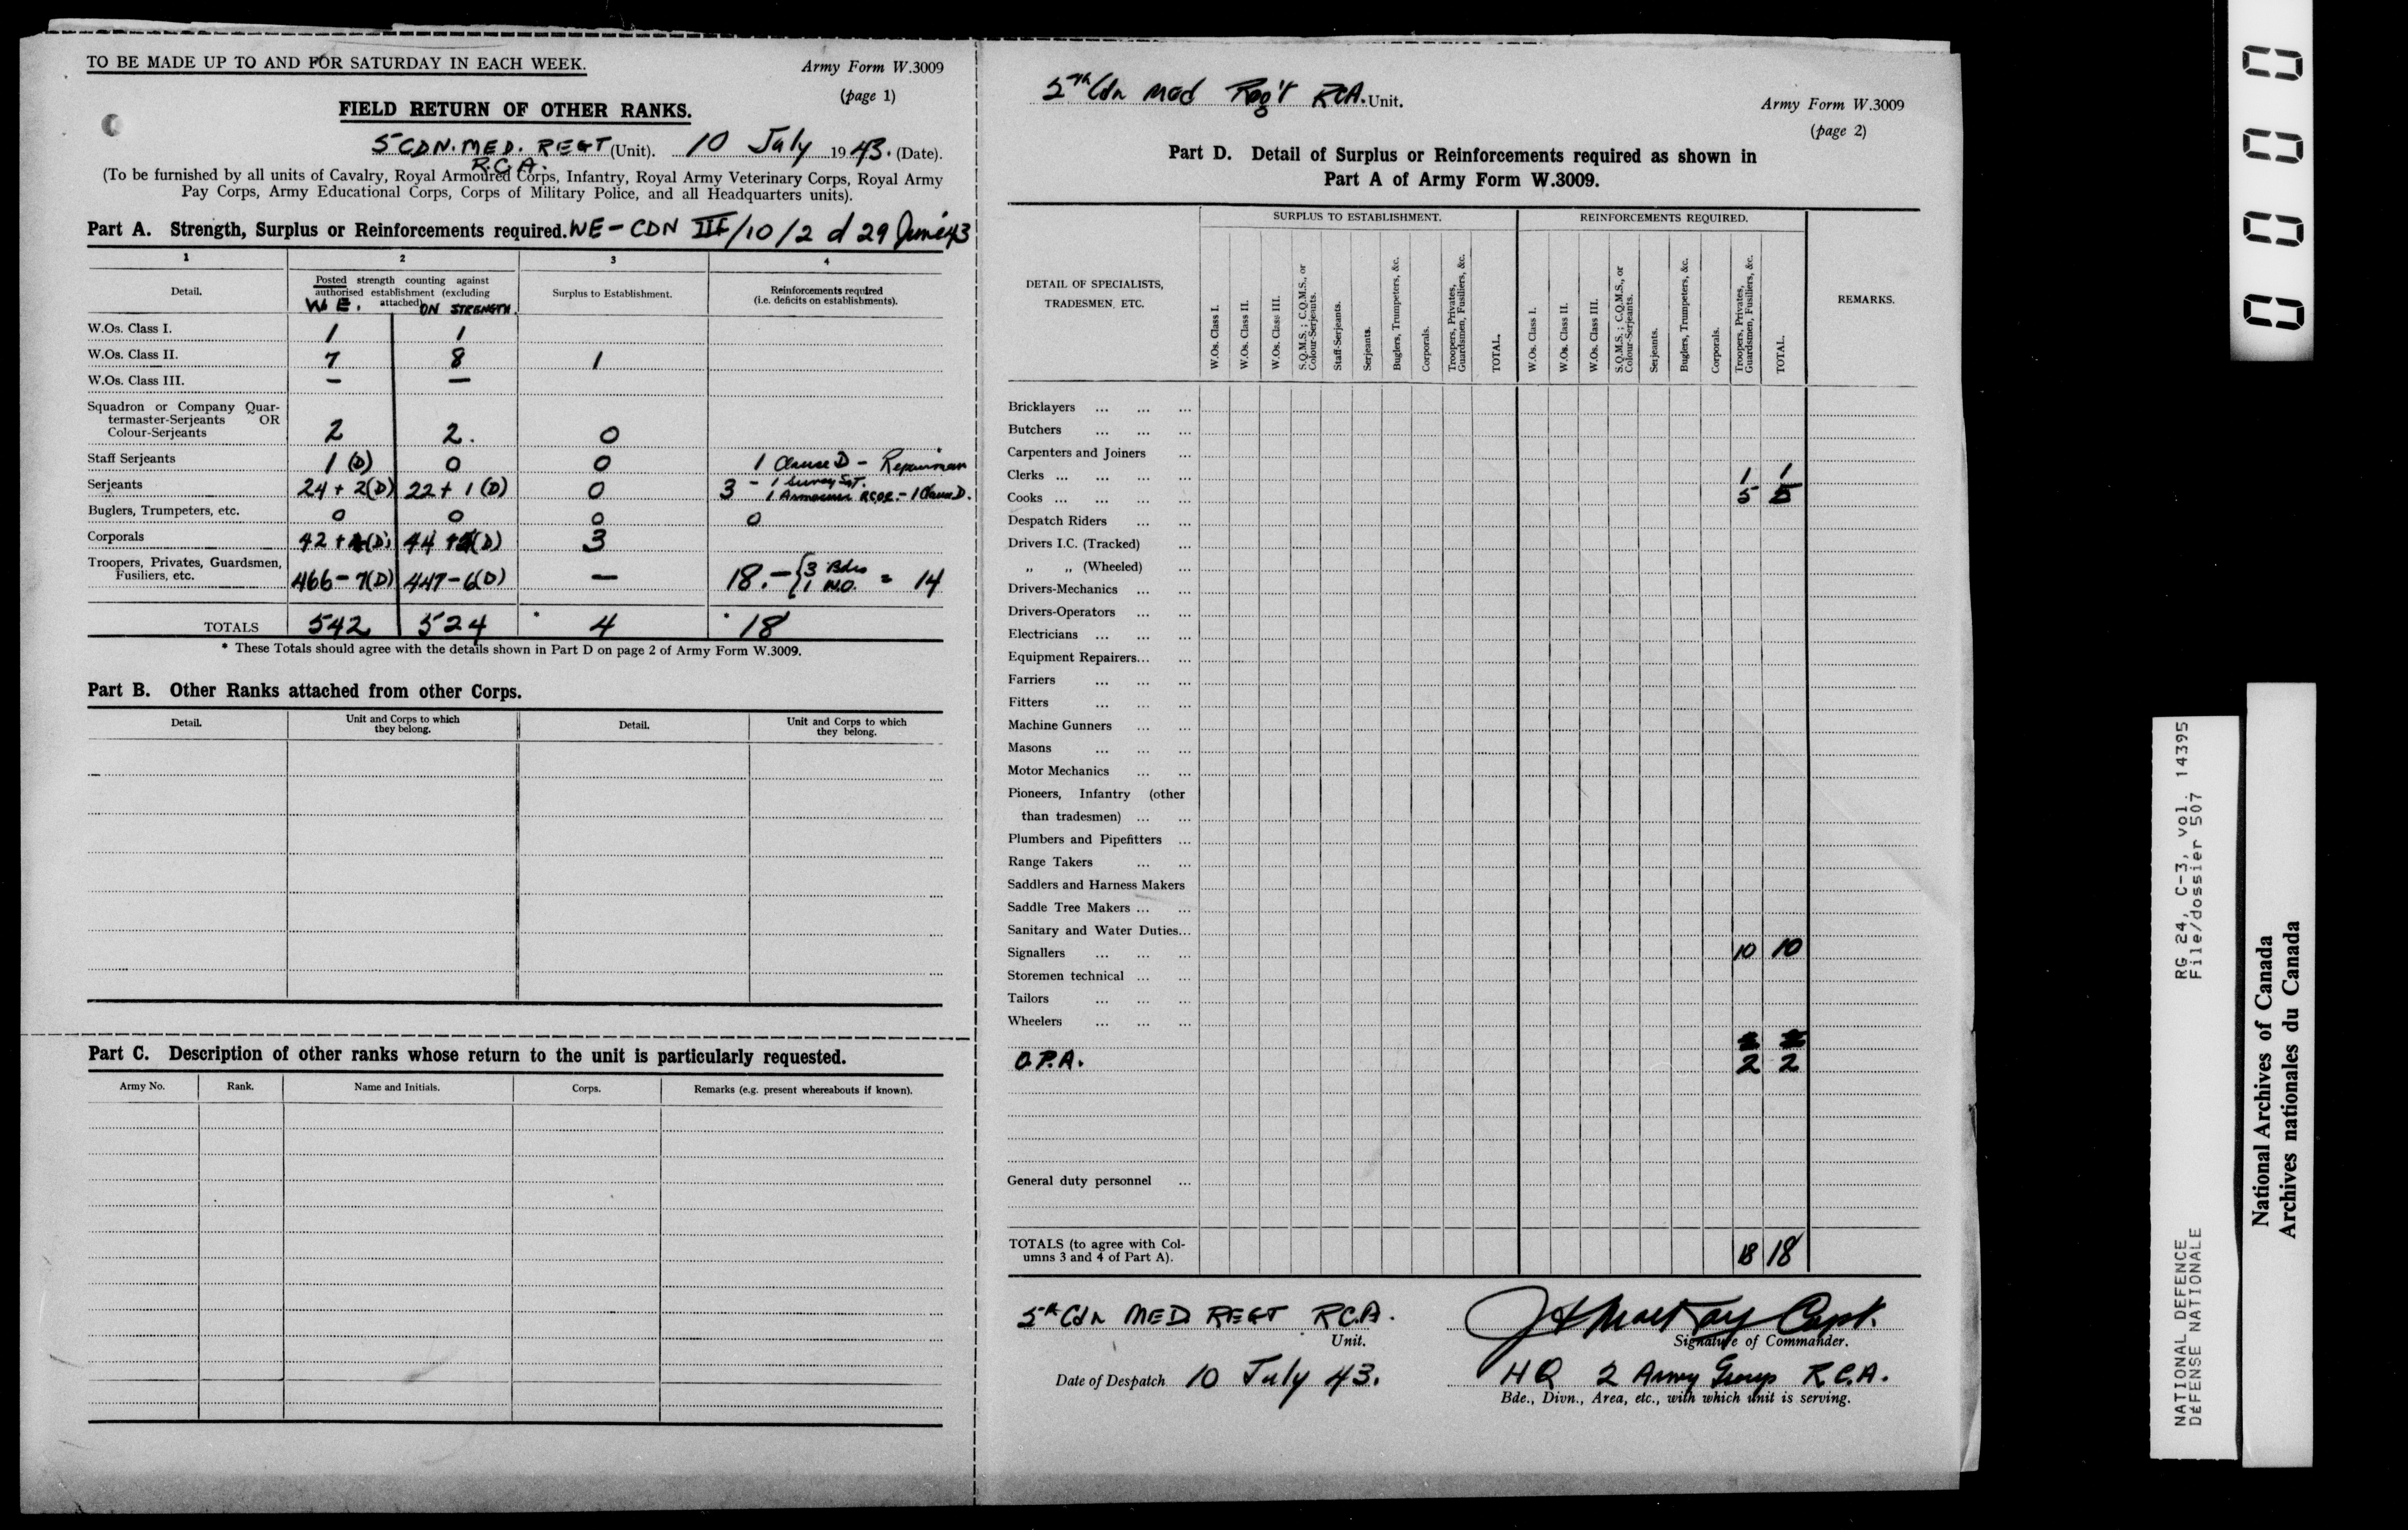 TO BE MADE UP TO AND FOR SATURDAY IN EACH WEEK.
Army Form W.3009
(page 1)
FIELD RETURN OF OTHER RANKS.
5 CDN. MED. REGT (Unit). 10 July 1943. (Date).
R.C.A.
(To be furnished by all units of Cavalry, Royal Armoured Corps, Infantry, Royal Army Veterinary Corps, Royal Army
Pay Corps, Army Educational Corps, Corps of Military Police, and all Headquarters units).
Part A. Strength, Surplus or Reinforcements required. WE - CDN III/10/2 d 29 June 43
1 2 3 4
Detail. Posted strength counting against authorised establishment (excluding attached) Surplus to Establishment. Reinforcements required (i.e. deficits on establishments).
W.E. ON STRENGTH.
W.Os. Class I. 1 1
W.Os. Class II. 7 8 1
W.Os. Class III. — —
Squadron or Company Quar-
termaster-Serjeants OR
Colour-Serjeants 2 2. 0
Staff Serjeants 1 (D) 0 0 1 Clause D - Repairman
Serjeants 24 + 2(D) 22 + 1 (D) 0 3 - 1 Survey Sgt.
1 Armourer RCOC. - 1 Clause D.
Buglers, Trumpeters, etc. 0 0 0 0
Corporals 42 + (D) 44 + (D) 3
Troopers, Privates, Guardsmen,
Fusiliers, etc. 466 - 7(D) 447 - 6(D) — 18. - {3 Bdrs 1 = 14
TOTALS 542 524 * 4 * 18
* These Totals should agree with the details shown in Part D on page 2 of Army Form W.3009.
Part B. Other Ranks attached from other Corps.
Detail. Unit and Corps to which they belong. Detail. Unit and Corps to which they belong.
Part C. Description of other ranks whose return to the unit is particularly requested.
Army No. Rank. Name and Initials. Corps. Remarks (e.g. present whereabouts if known).
5th Cdn Med Reg't RCA. Unit.
Army Form W.3009
(page 2)
Part D. Detail of Surplus or Reinforcements required as shown in
Part A of Army Form W.3009.
DETAIL OF SPECIALISTS, TRADESMEN, ETC.
SURPLUS TO ESTABLISHMENT. REINFORCEMENTS REQUIRED. REMARKS.
W.Os. Class I.
W.Os. Class II.
W.Os. Class III.
S.Q.M.S.; C.Q.M.S., or Colour-Serjeants.
Staff-Serjeants.
Serjeants.
Buglers, Trumpeters, &c.
Corporals.
Troopers, Privates, Guardsmen, Fusiliers, &c.
TOTAL.
W.Os. Class I.
W.Os. Class II.
W.Os. Class III.
S.Q.M.S.; C.Q.M.S., or Colour-Serjeants.
Serjeants.
Buglers, Trumpeters, &c.
Corporals.
Troopers, Privates, Guardsmen, Fusiliers, &c.
TOTAL.
Bricklayers ... ... ...
Butchers ... ... ...
Carpenters and Joiners ...
Clerks ... ... ... ... 1 1
Cooks ... ... ... ... 5 5
Despatch Riders ... ...
Drivers I.C. (Tracked) ...
„ „ (Wheeled) ...
Drivers-Mechanics ... ...
Drivers-Operators ... ...
Electricians ... ... ...
Equipment Repairers... ...
Farriers ... ... ...
Fitters ... ... ...
Machine Gunners ... ...
Masons ... ... ...
Motor Mechanics ... ...
Pioneers, Infantry (other
than tradesmen) ... ...
Plumbers and Pipefitters ...
Range Takers ... ...
Saddlers and Harness Makers
Saddle Tree Makers ... ...
Sanitary and Water Duties...
Signallers ... ... ... 10 10
Storemen technical ... ...
Tailors ... ... ...
Wheelers ... ... ...
O.P.A. 2 2
General duty personnel ...
TOTALS (to agree with Col-
umns 3 and 4 of Part A). 18 18
5th Cdn MED REGT RCA.
Unit.
Capt.
Signature of Commander.
Date of Despatch 10 July 43.
HQ 2 Army Group R.C.A.
Bde., Divn., Area, etc., with which unit is serving.
0000
NATIONAL DEFENCE RG 24, C-3, vol. 14395
DÉFENSE NATIONALE File/dossier 507
National Archives of Canada
Archives nationales du Canada